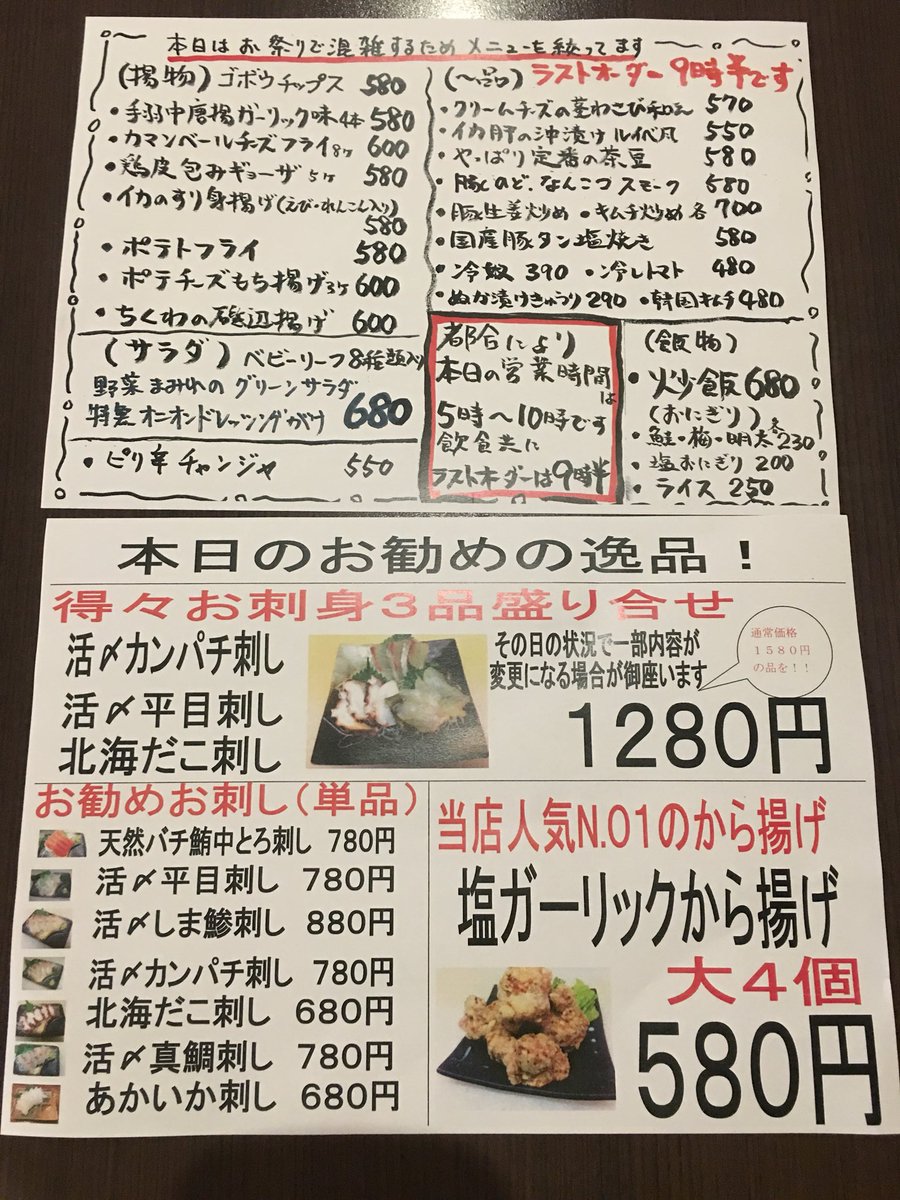 本日はお祭りで混雑するためメニューを絞ってます
(揚物) ゴボウチップス 580
・手羽中唐揚ガーリック味4本 580
・カマンベールチーズフライ8ヶ 600
・鶏皮包みギョーザ5ヶ 580
・イカのすり身揚げ(えび・れんこん入り)
580
・ポテトフライ 580
・ポテチーズもち揚げ3ヶ 600
・ちくわの磯辺揚げ 600
(サラダ) ベビーリーフ8種類入り
野菜まみれのグリーンサラダ
特製オニオンドレッシングがけ 680
・ピリ辛チャンジャ 550
(一品) ラストオーダー9時半です
・クリームチーズの茎わさび和え 570
・イカ肝の沖漬けルイベ風 550
・やっぱり定番の茶豆 580
・豚のど、なんこつスモーク 580
・豚生姜炒め ・キムチ炒め各 700
・国産豚タン塩焼き 580
・冷奴 390 ・冷しトマト 480
・ぬか漬けきゅうり 290 ・韓国キムチ 480
都合により
本日の営業時間
は
5時~10時です
飲食共に
ラストオーダーは9時半
(飯物)
・炒飯 680
(おにぎり)
・鮭・梅・明太 各230
・塩おにぎり 200
・ライス 250
本日のお勧めの逸品!
得々お刺身3品盛り合せ
活〆カンパチ刺し
活〆平目刺し
北海だこ刺し
その日の状況で一部内容が
変更になる場合が御座います
通常価格
1580円
の品を!!
1280円
お勧めお刺し(単品)
天然バチ鮪中とろ刺し 780円
活〆平目刺し 780円
活〆しま鯵刺し 880円
活〆カンパチ刺し 780円
北海だこ刺し 680円
活〆真鯛刺し 780円
あかいか刺し 680円
当店人気N.O1のから揚げ
塩ガーリックから揚げ
大4個
580円